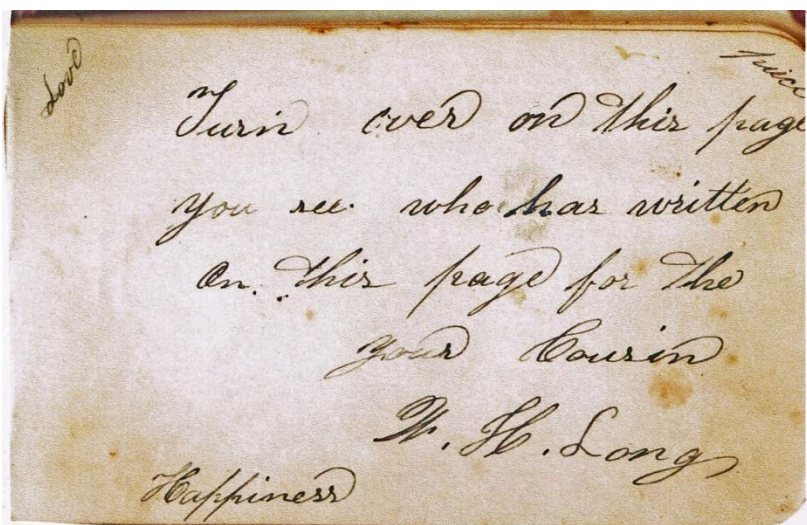 Love
Turn over on this page
you see who has written
on this page for the
your Cousin
W. H. Long
Happiness